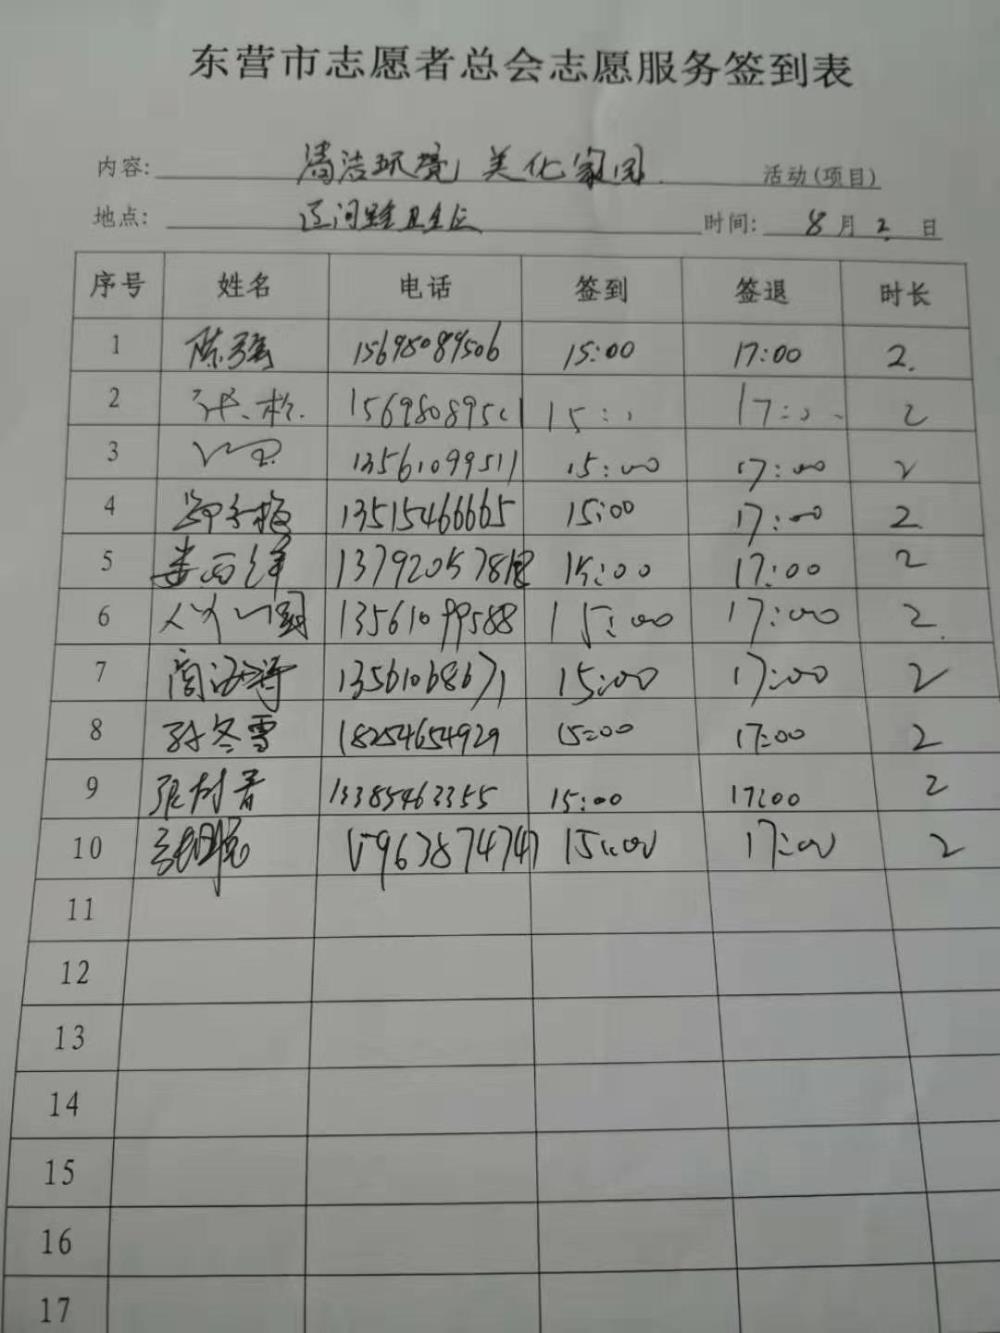 东营市志愿者总会志愿服务签到表
内容: 清洁环境 美化家园 活动(项目)
地点: 辽河路卫生区 时间: 8月2日
序号 姓名 电话 签到 签退 时长
1 陈强 15698089506 15:00 17:00 2
2 15698089501 15:00 17:00 2
3 13561099511 15:00 17:00 2
4 13515466665 15:00 17:00 2
5 15:00 17:00 2
6 13561099588 15:00 17:00 2
7 阎海涛 13561068671 15:00 17:00 2
8 孙冬雪 18254654929 15:00 17:00 2
9 张树青 13385463355 15:00 17:00 2
10 15963874747 15:00 17:00 2
11
12
13
14
15
16
17